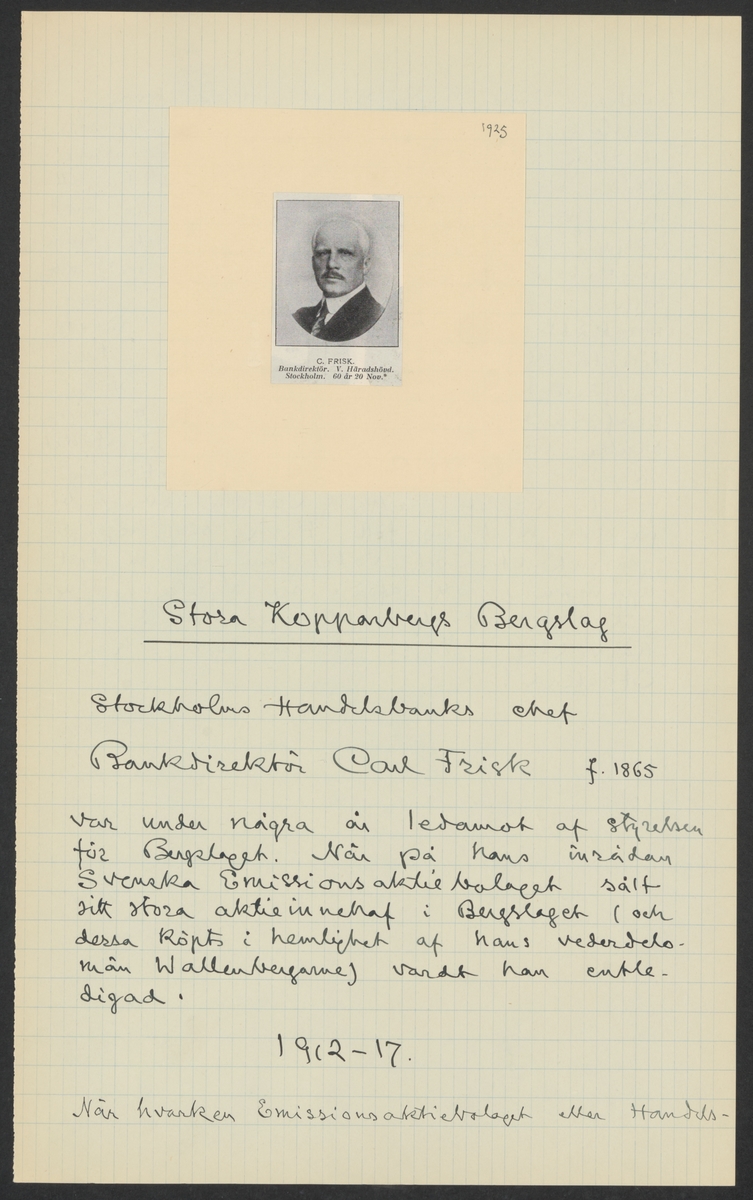 1925
C. FRISK.
Bankdirektör. V. Häradshövd.
Stockholm. 60 år 20 Nov.*
Stora Kopparbergs Bergslag
Stockholms Handelsbanks chef
Bankdirektör Carl Frisk f. 1865
var under några år ledamot af styrelsen
för Bergslaget. När på hans inrådan
Svenska Emissionsaktiebolaget sålt
sitt stora aktieinnehaf i Bergslaget (och
dessa köpts i hemlighet af hans vederdelo-
män Wallenbergarne) vardt han entle-
digad.
1912-17.
När hvarken Emissionsaktiebolaget eller Handels-